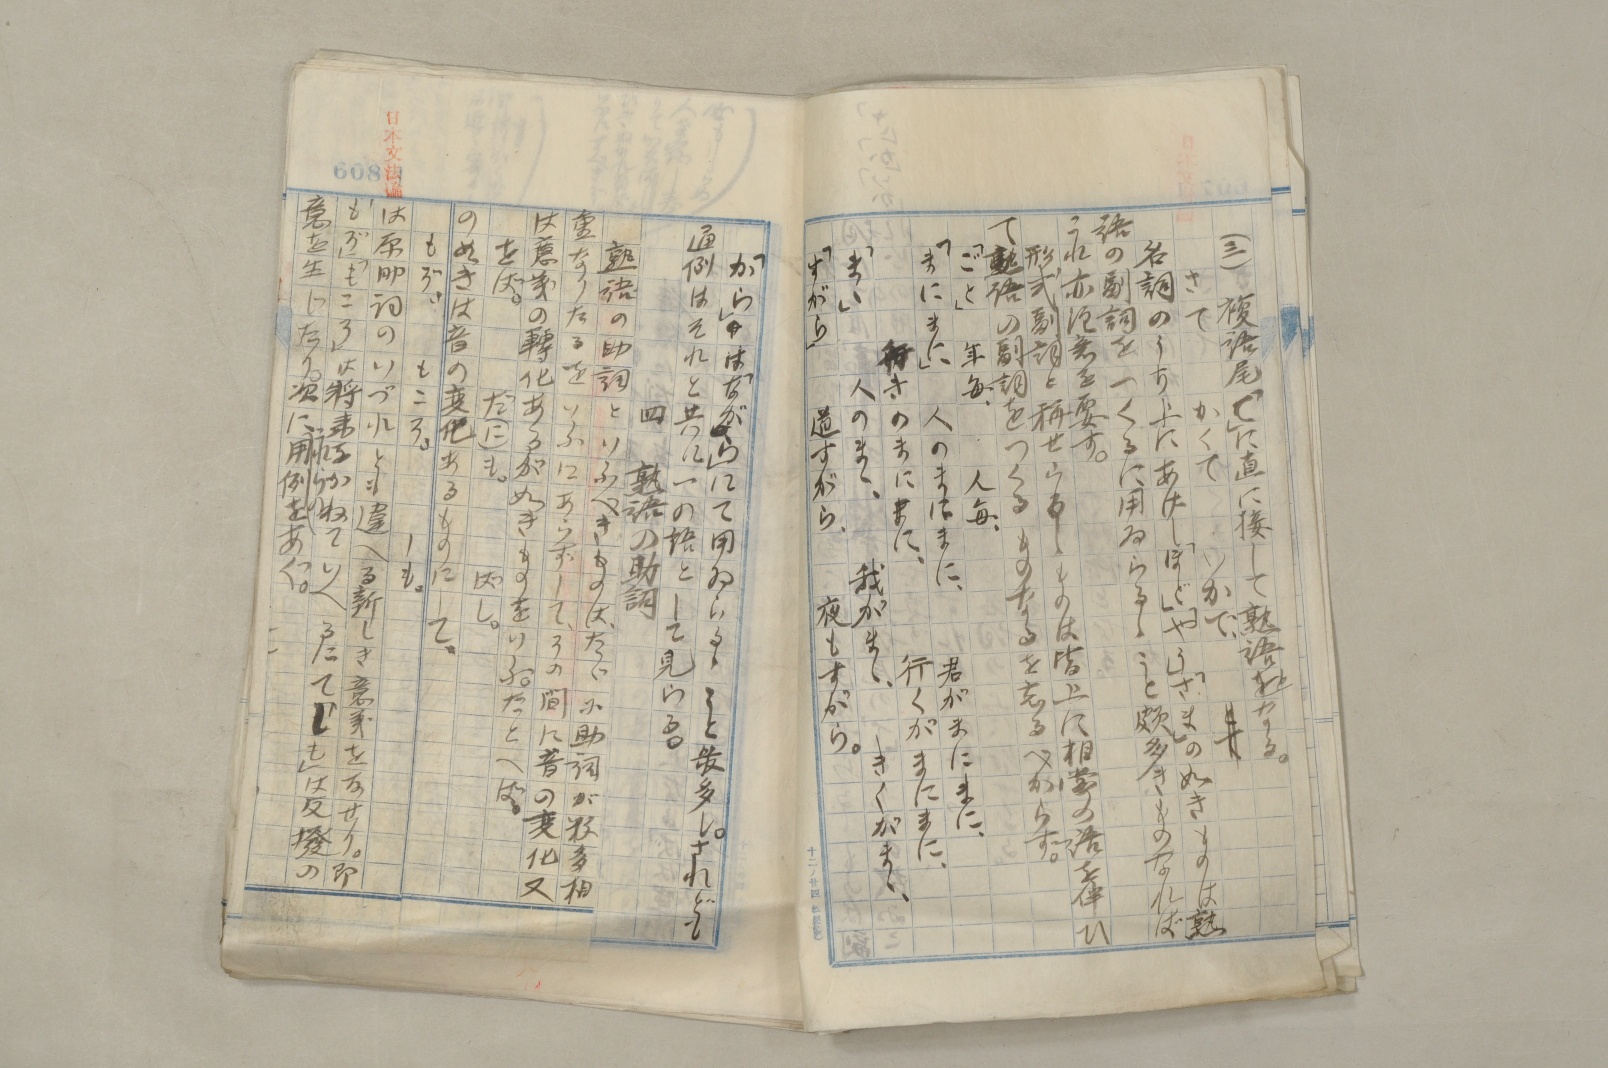 (三) 複語尾「て」に直に接して熟語となる。
さて かくて いかで、
名詞のうち上にあげし「ほど」「やう」「さま」の如きものは熟
語の副詞をつくるに用ゐらるゝこと頗多きものなれば
これ亦注意を要す。
形式副詞と称せらるゝものは皆上に相当の語を伴ひ
て熟語の副詞をつくるものなるを忘るべからず。
「ごと」 年毎、 人毎、
「まにまに」 人のまにまに、 君がまにまに、
行きのまにまに、 行くがまにまに、
「まゝ」 人のまゝ、 我がまゝ、 きくがまゝ、
「すがら」 道すがら、 夜もすがら。
「から」は「ながら」にて用ゐらるゝこと最多し。されども
通例はそれと共に一の語として見らる。
四 熟語の助詞
熟語の助詞といふべきものは、たゞに助詞が数多相
重なりたるをいふにあらずして、その間に音の変化又
は意義の転化あるが如きものをいふ。たとへば。
をば。 だにも。 ばし。
の如きは音の変化あるものにして。
もぞ。 もこそ。 しも。
は原助詞のいづれとも違へる新しき意義をなせり。即
「もぞ」「もこそ」は将来をかねていへるにて「しも」は反撥の
意を生じたり。次に用例をあぐ。
日本文法論
608